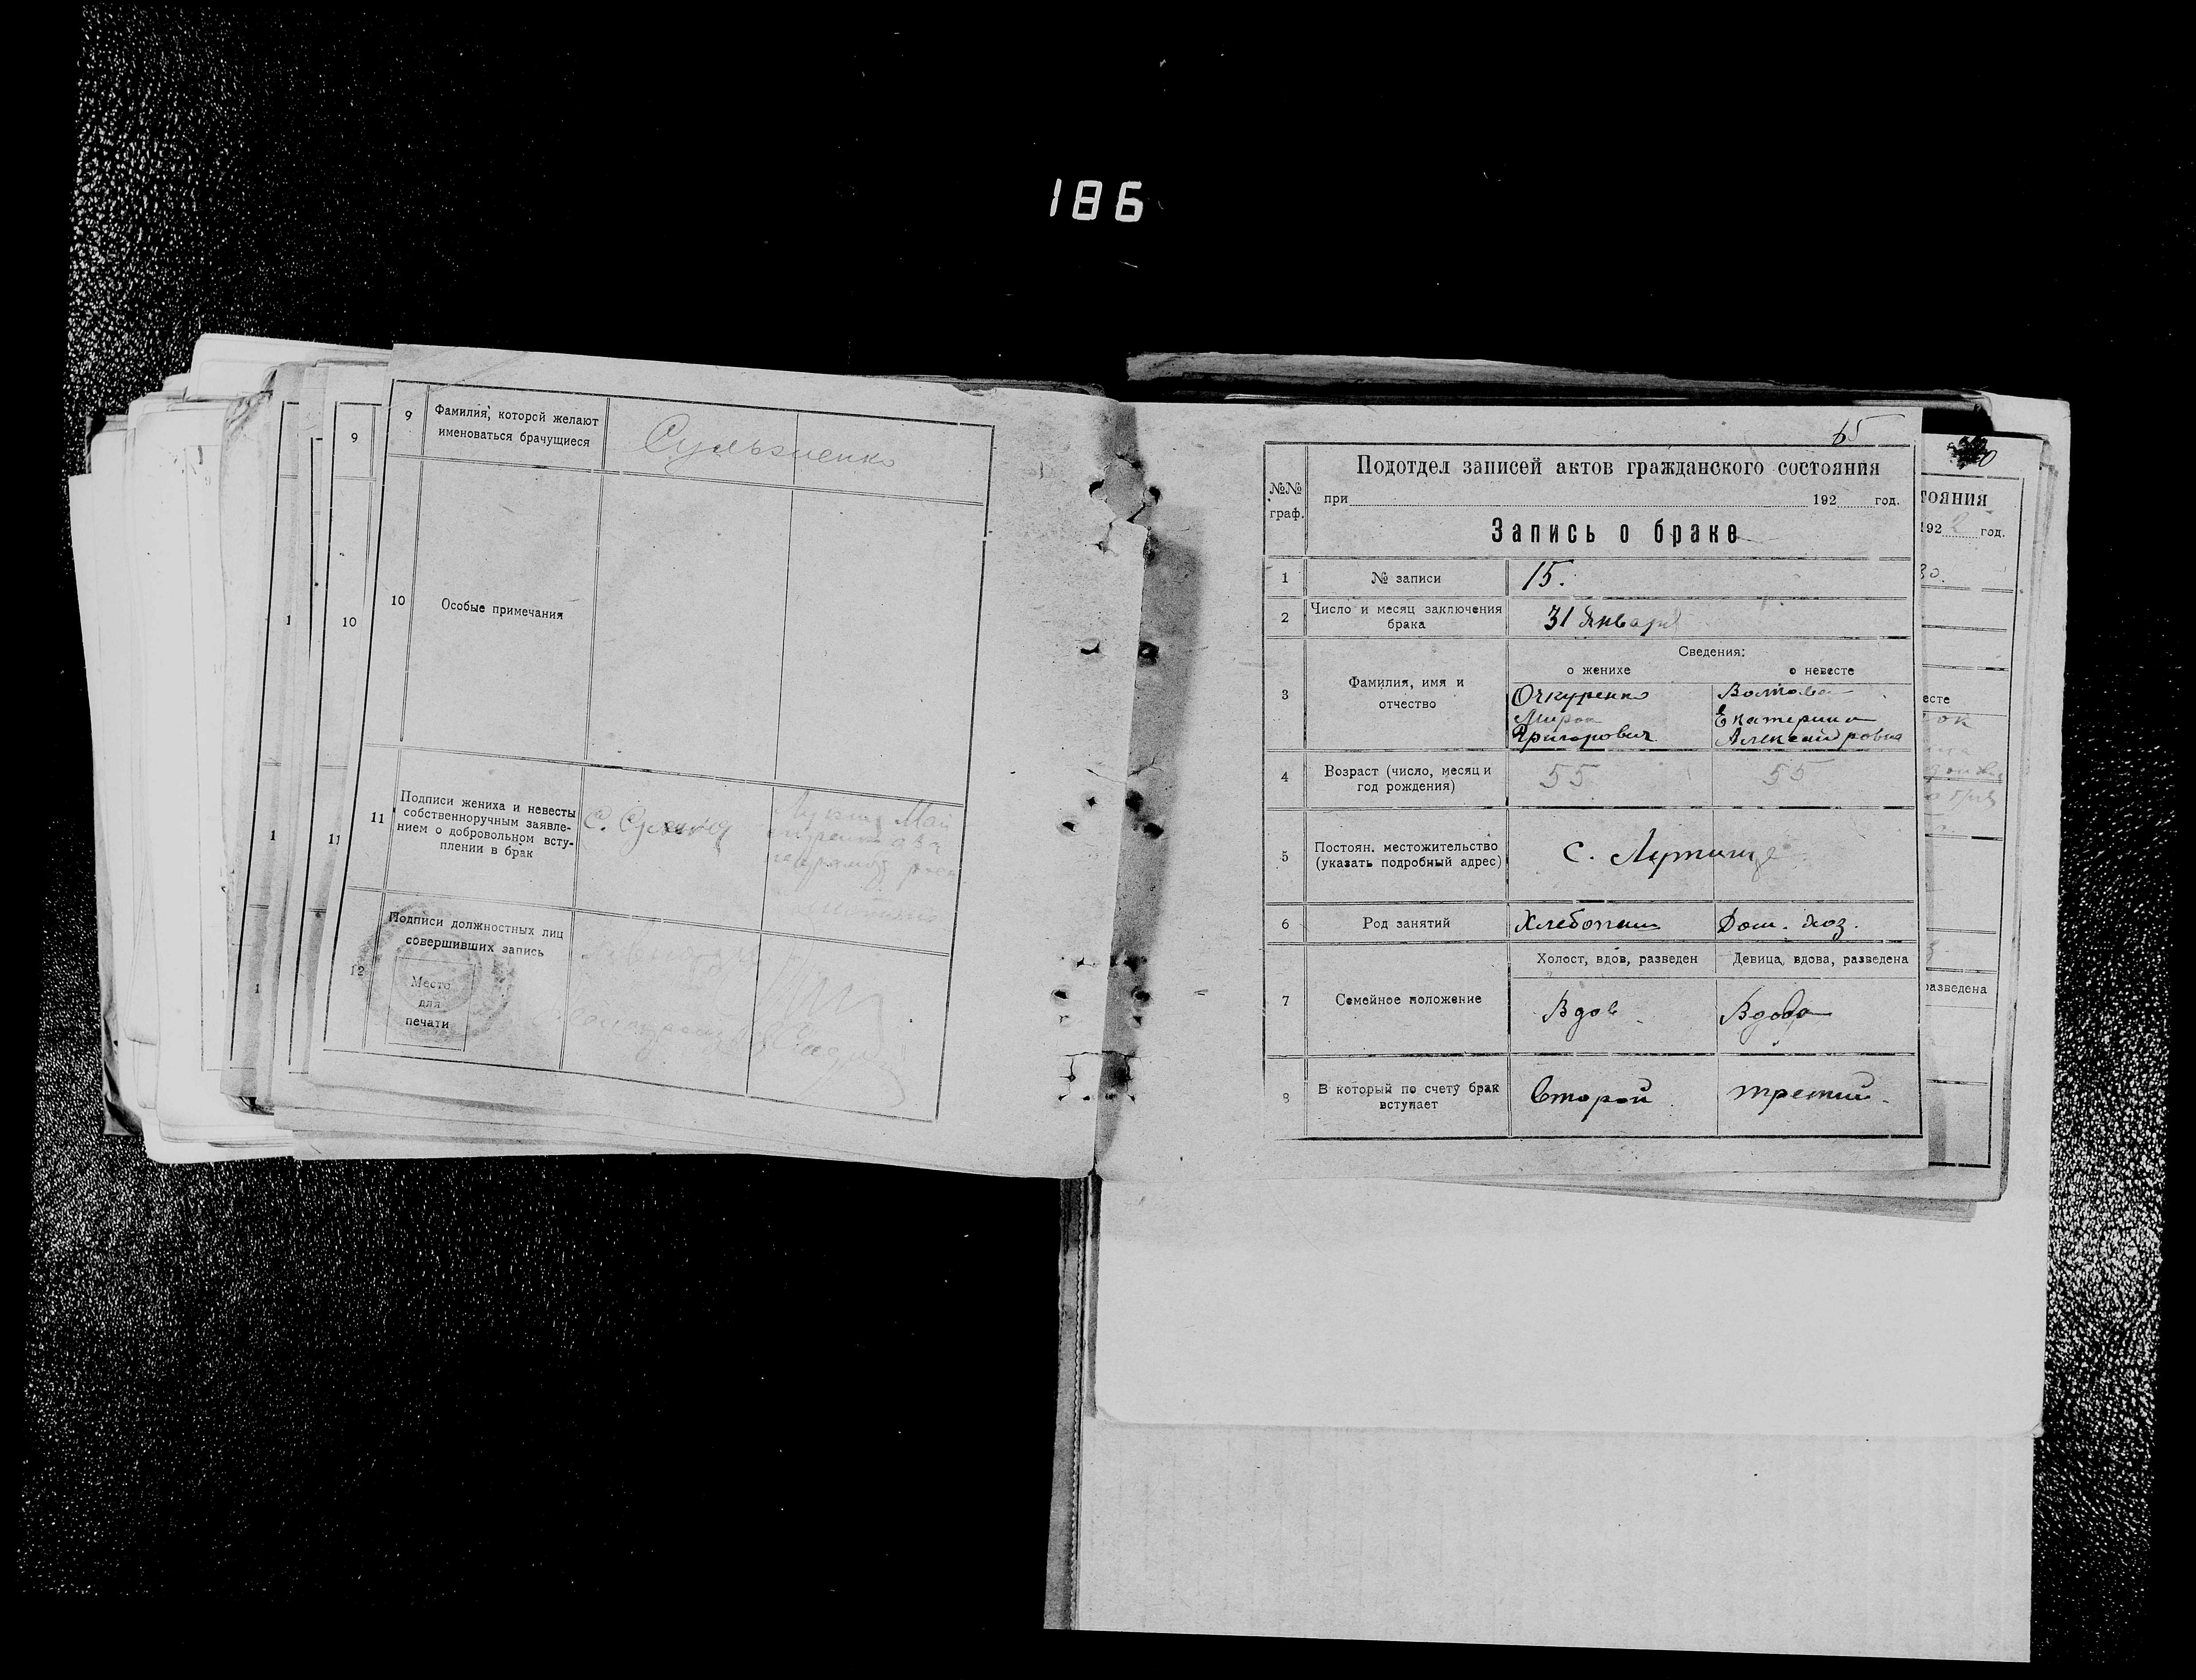 186
9
Фамилия, которой желают
именоваться брачущиеся
10
Особые примечания
11
Подписи жениха и невесты
собственноручным заявле-
нием о добровольном всту-
плении в брак
С.
12
Подписи должностных лиц
совершивших запись
Место
для
печати
9
10
11
1
1
1
65
№№
граф.
Подотдел записей актов гражданского состояния
при 192 год.
Запись о браке
1
№ записи
15.
2
Число и месяц заключения
брака
31 Января
3
Фамилия, имя и
отчество
Сведения:
о женихе
о невесте
Очкуренко
Мирон
Григорович
Екатерина
Александровна
4
Возраст (число, месяц и
год рождения)
55
55
5
Постоян. местожительство
(указать подробный адрес)
с. Лутище
6
Род занятий
Хлебопаш
Дом. хоз.
7
Семейное положение
Холост, вдов, разведен
Девица, вдова, разведена
Вдов
Вдова
8
В который по счету брак
вступает
Второй
третий
тояния
192 2 год.
30.
есте
разведена